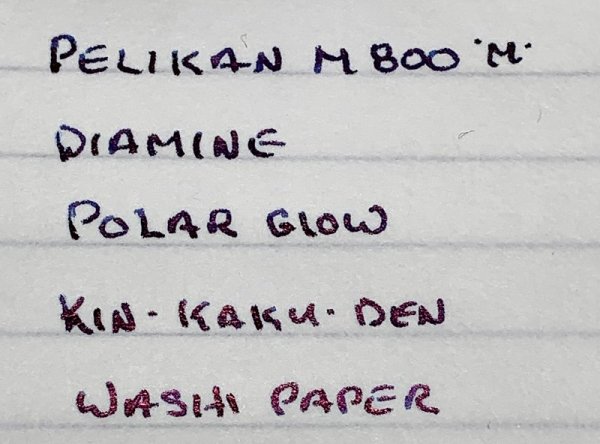 PELIKAN M800 "M"
DIAMINE
POLAR GLOW
KIN-KAKU-DEN
WASHI PAPER